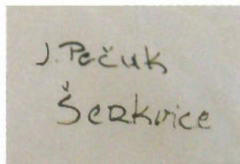 J. Pečuk
Šerkvice